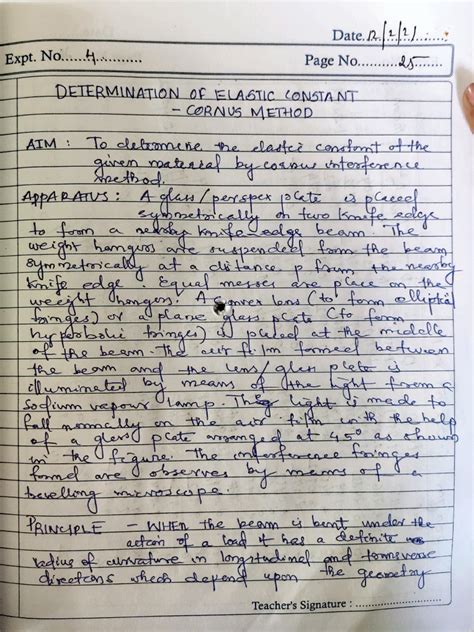 Date. 12/2/21
Expt. No. 4
Page No. 25
DETERMINATION OF ELASTIC CONSTANT
- CORNUS METHOD
AIM : To determine the elastic constant of the
given material by cornus interference
method.
APPARATUS : A glass/perspex plate is placed
symmetrically on two knife edge
to form a nearby knife-edge beam. The
weight hangers are suspended from the beam
symmetrically at a distance p from the nearby
knife edge. Equal masses are place on the
weight hangers. A lens (to form elliptical
fringes) or plane glass plate (to form
hyperbolic fringes) is placed at the middle
of the beam. The air film formed between
the beam and the lens/glass plate is
illuminated by means of the light from a
Sodium vapour lamp. The light is made to
fall normally on the air film with the help
of a glass plate arranged at 45° as shown
in the figure. The interference fringes
formed are observes by means of a
travelling microscope.
PRINCIPLE - WHEN the beam is bent under the
action of a load it has a definite
radius of curvature in longitudinal and transverse
directions which depend upon the geometry
Teacher's Signature :